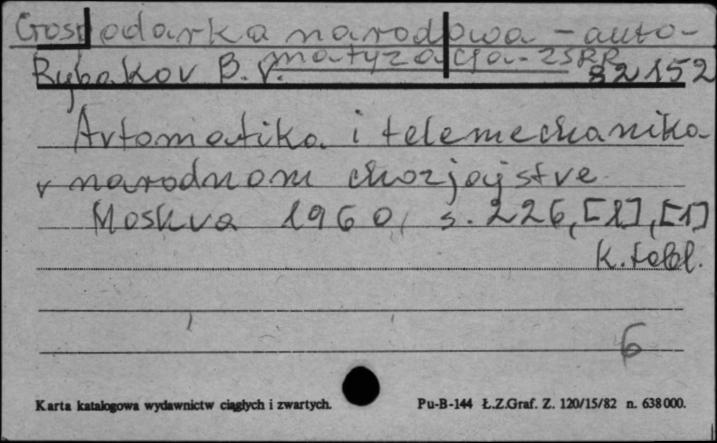 Gospodarka narodowa - auto-
matyzacja - ZSRR
Rybakov B. V. 82152
Avtomatika i telemechanika
v narodnom chozjajstve.
Moskva 1960, s. 226, [2], [1]
k. tabl.
6
Karta katalogowa wydawnictw ciągłych i zwartych. Pu-B-144 Ł.Z.Graf. Z. 120/15/82 n. 638000.